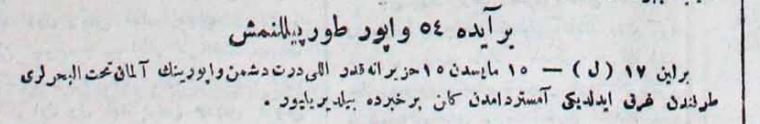 بر آیده ٥٤ واپور طورپیللنمش
برلین ١٧ ( ل ) — ١٥ مایسدن ١٥ حزیرانه قدر اللی درت دشمن واپورینك آلمان تحت البحرلری
طرفندن غرق ایدلدیكی آمستردامدن كلن بر خبرده بیلدیریلیور .